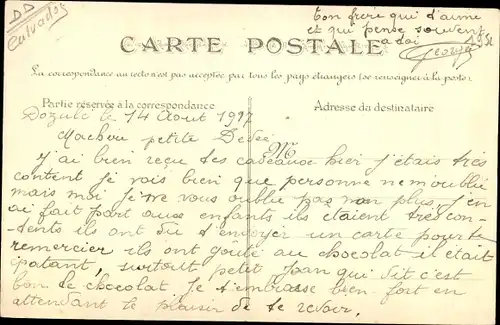 DD
Calvados
ton frère qui t'aime
et qui pense souvent
a toi
Georges
CARTE POSTALE
La correspondance au recto n'est pas acceptée par tous les pays étrangers (se renseigner à la poste)
Partie réservée à la correspondance
Adresse du destinataire
Dozulé le 14 Aout 1917
petite Dédée
M
J'ai bien reçu tes cadeaux hier j'étais très
content je vois bien que personne ne m'oublie
mais moi je ne vous oublie pas non plus, j'en
ai fait part aux enfants ils étaient très con-
tents ils ont du t'envoyer un carte pour te
remercier ils ont goûté au chocolat il était
épatant, surtout petit Jean qui dit c'est
bon le chocolat je t'embrasse bien fort en
attendant le plaisir de te revoir.